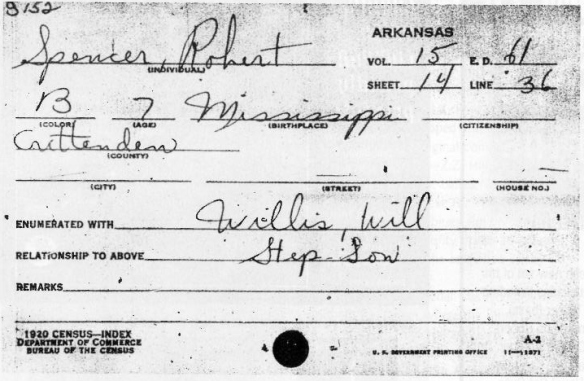 S152
ARKANSAS
Spencer, Robert VOL. 15 E. D. 61
(INDIVIDUAL)
SHEET 14 LINE 36
B 7 Mississippi
(COLOR) (AGE) (BIRTHPLACE) (CITIZENSHIP)
Crittenden
(COUNTY)
(CITY) (STREET) (HOUSE NO.)
ENUMERATED WITH Willis, Will
RELATIONSHIP TO ABOVE Step-Son
REMARKS
1920 CENSUS—INDEX
DEPARTMENT OF COMMERCE
BUREAU OF THE CENSUS
A-2
U. S. GOVERNMENT PRINTING OFFICE